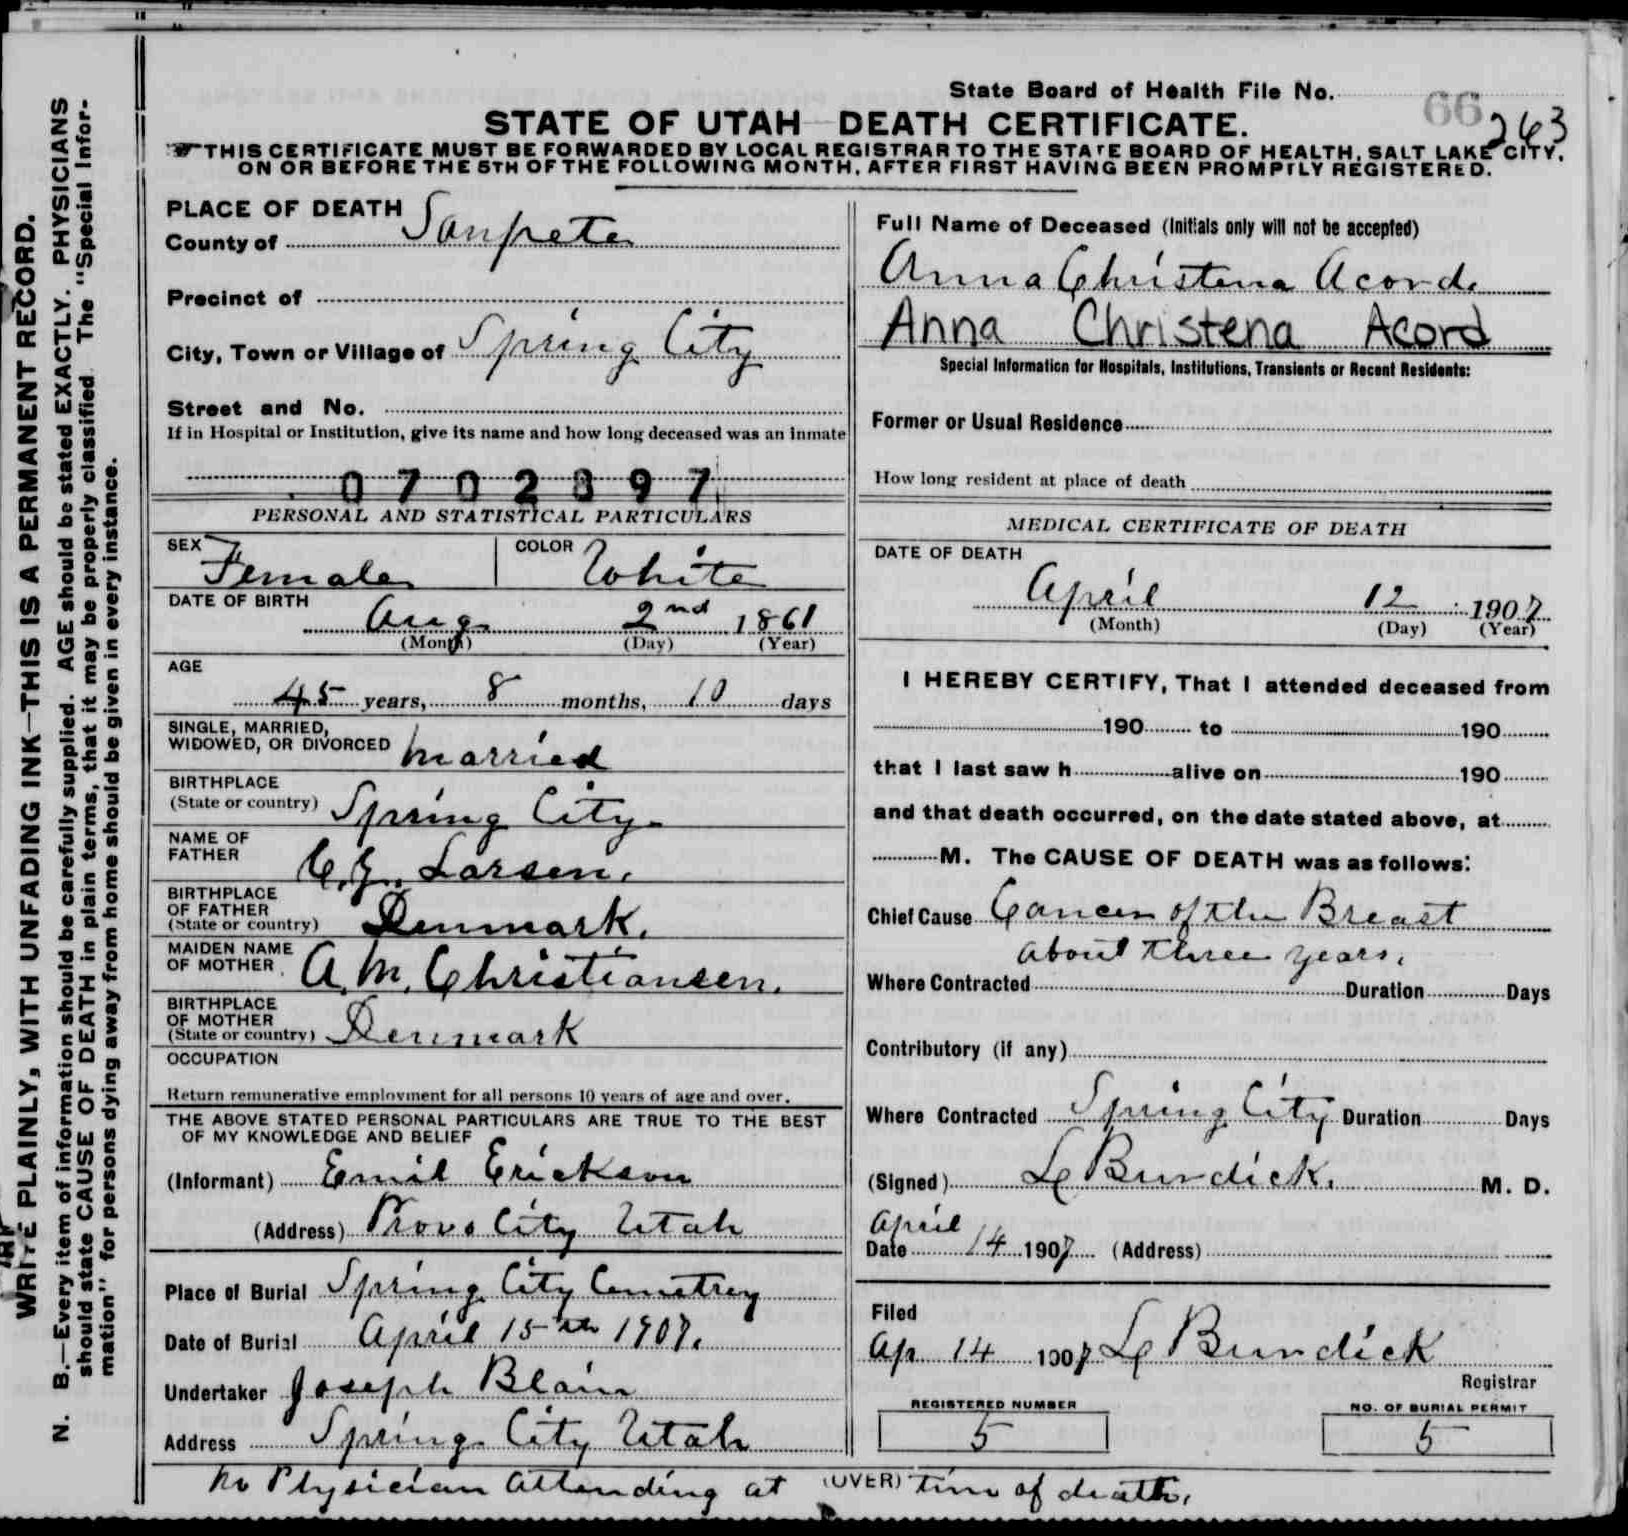 WRITE PLAINLY, WITH UNFADING INK—THIS IS A PERMANENT RECORD.
N. B.—Every item of information should be carefully supplied. AGE should be stated EXACTLY. PHYSICIANS
should state CAUSE OF DEATH in plain terms, that it may be properly classified. The "Special Infor-
mation" for persons dying away from home should be given in every instance.
State Board of Health File No.
66 263
STATE OF UTAH—DEATH CERTIFICATE.
THIS CERTIFICATE MUST BE FORWARDED BY LOCAL REGISTRAR TO THE STATE BOARD OF HEALTH, SALT LAKE CITY,
ON OR BEFORE THE 5TH OF THE FOLLOWING MONTH, AFTER FIRST HAVING BEEN PROMPTLY REGISTERED.
PLACE OF DEATH
County of Sanpete
Precinct of
City, Town or Village of Spring City
Street and No.
If in Hospital or Institution, give its name and how long deceased was an inmate
0702897
PERSONAL AND STATISTICAL PARTICULARS
SEX Female COLOR White
DATE OF BIRTH
Aug 2nd 1861
(Month) (Day) (Year)
AGE
45 years, 8 months, 10 days
SINGLE, MARRIED,
WIDOWED, OR DIVORCED married
BIRTHPLACE
(State or country) Spring City
NAME OF
FATHER C.G. Larsen.
BIRTHPLACE
OF FATHER
(State or country) Denmark.
MAIDEN NAME
OF MOTHER A.M. Christiansen.
BIRTHPLACE
OF MOTHER
(State or country) Denmark
OCCUPATION
Return remunerative employment for all persons 10 years of age and over.
THE ABOVE STATED PERSONAL PARTICULARS ARE TRUE TO THE BEST
OF MY KNOWLEDGE AND BELIEF
(Informant) Emil Erickson
(Address) Provo City Utah
Place of Burial Spring City Cemetrey
Date of Burial April 15th 1907.
Undertaker Joseph Blain
Address Spring City Utah
Full Name of Deceased (Initials only will not be accepted)
Anna Christena Acord.
Anna Christena Acord
Special Information for Hospitals, Institutions, Transients or Recent Residents:
Former or Usual Residence
How long resident at place of death
MEDICAL CERTIFICATE OF DEATH
DATE OF DEATH
April 12 1907
(Month) (Day) (Year)
I HEREBY CERTIFY, That I attended deceased from
190 to 190
that I last saw h alive on 190
and that death occurred, on the date stated above, at
M. The CAUSE OF DEATH was as follows:
Chief Cause Cancer of the Breast
about three years.
Where Contracted Duration Days
Contributory (if any)
Where Contracted Spring City Duration Days
(Signed) L Burdick. M. D.
April
Date 14 1907 (Address)
Filed
Ap 14 1907 L Burdick
Registrar
REGISTERED NUMBER
5
NO. OF BURIAL PERMIT
5
(OVER)
no Physician attending at time of death.